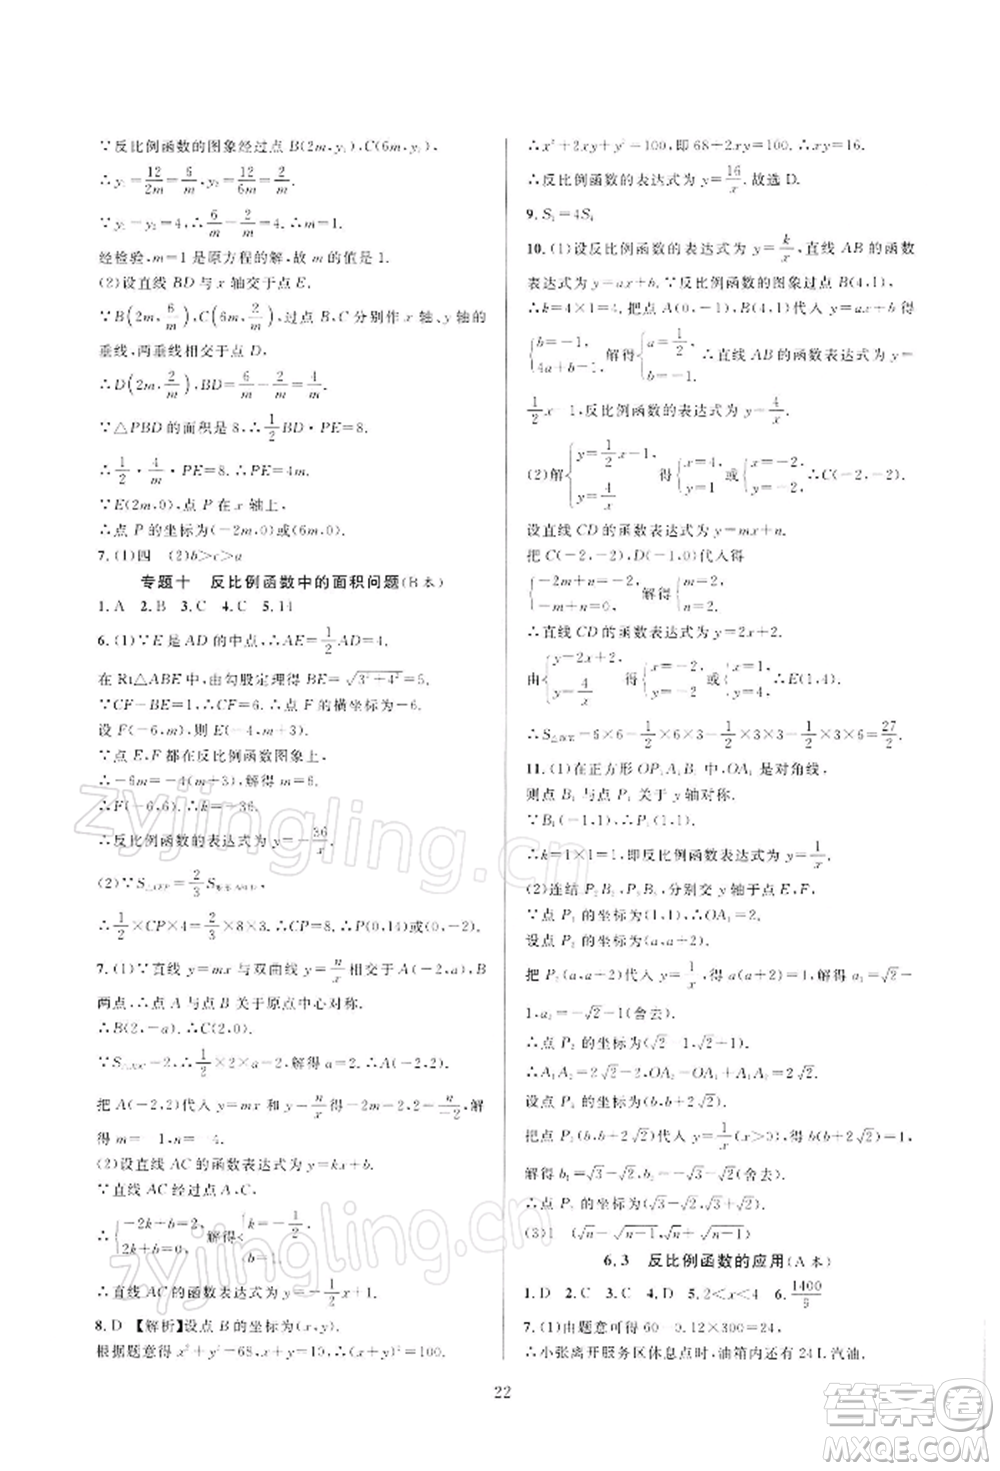 ∵反比例函数的图象经过点 B(2m,y₁),C(6m,y₂),
∴y₁=12/2m=6/m,y₂=12/6m=2/m.
∵y₁-y₂=4,∴6/m-2/m=4.∴m=1.
经检验,m=1 是原方程的解,故 m 的值是 1.
(2)设直线 BD 与 x 轴交于点 E.
∵B(2m,6/m),C(6m,2/m),过点 B、C 分别作 x 轴、y 轴的
垂线,两垂线相交于点 D,
∴D(2m,2/m),BD=6/m-2/m=4/m.
∵△PBD 的面积是 8,∴1/2BD·PE=8.
∴1/2·4/m·PE=8.∴PE=4m.
∵E(2m,0),点 P 在 x 轴上,
∴点 P 的坐标为(-2m,0)或(6m,0).
7.(1)四 (2)b>c>a
专题十 反比例函数中的面积问题(B本)
1.A 2.B 3.C 4.C 5.14
6.(1)∵E 是 AD 的中点,∴AE=1/2AD=4,
在 Rt△ABE 中,由勾股定理得 BE=√3²+4²=5.
∵CF-BE=1,∴CF=6.∴点 F 的横坐标为-6.
设 F(-6,m),则 E(-4,m-3).
∵点 E、F 都在反比例函数图象上,
∴-6m=-4(m-3),解得 m
∴F(-6,6),∴k=-36.
∴反比例函数的表达式为 y=-36/x.
(2)∵S
∴1/2×CP×4=2/3×8×3.∴CP=8.∴P(0,14)或(0,-2).
7.(1)∵直线 y=mx 与双曲线 y=n/x相交于 A(-2,a)、B
两点,∴点 A 与点 B 关于原点中心对称.
∴B(2,-a).∴C(2,0).
∵S=2,∴1/2×2×a=2,解得 a=2.∴A(-2,2).
把 A(-2,2)代入 y=mx 和 y=n/x得-2m=2,2=n/-2,解
得 m=-1,n=-4.
(2)设直线 AC 的函数表达式为 y=kx+b.
∵直线 AC 经过点 A、C,
∴{-2k+b=2,2k+b=0,解得{k=-1/2,b=1.
∴直线 AC 的函数表达式为 y=-1/2x+1.
8.D 【解析】设点 B 的坐标为(x,y).
根据题意得 x²+y²=68,2(x+y)=20.∴(x+y)²=100.
∴x²+2xy+y²=100,即 68+2xy=100.∴xy=16.
∴反比例函数的表达式为 y=16/x.故选 D.
9.S₁=4S₄
10.(1)设反比例函数的表达式为 y=k/x,直线 AB 的函数
表达式为 y=ax+b.∵反比例函数的图象过点 B(4,1),
∴k=4×1=4.把点 A(0,-1)、B(4,1)代入 y=ax+b 得
{b=-1,4a+b=1,解得{a=1/2,b=-1.∴直线 AB 的函数表达式为 y=
1/2x-1,反比例函数的表达式为 y=4/x.
(2)解{y=1/2x-1,y=4/x得{x=4,y=1或{x=-2,y=-2.∴C(-2,-2).
设直线 CD 的函数表达式为 y=mx+n.
把 C(-2,-2)、D(-1,0)代入得
{-2m+n=-2,-m+n=0,解得{m=2,n=2.
∴直线 CD 的函数表达式为 y=2x+2.
由{y=2x+2,y=4/x得{x=1,y=4或{x=-2,y=-2.∴E(1,4).
∴S=6×6-1/2×6×3-1/2×3×3-1/2×3×6=27/2.
11.(1)在正方形 OP₁A₁B₁ 中,OA₁ 是对角线,
则点 B₁ 与点 P₁ 关于 y 轴对称.
∵B₁(-1,1),∴P₁(1,1).
∴k=1×1=1,即反比例函数表达式为 y=1/x.
(2)连结 P₂B₂、P₃B₃,分别交 y 轴于点 E、F,
∵点 P₁ 的坐标为(1,1),∴OA₁=2.
设点 P₂ 的坐标为(a,a+2).
把 P₂(a,a+2)代入 y=1/x得 a(a+2)=1,解得 a₁=√2-
1,a₂=-√2-1(舍去).
∴点 P₂ 的坐标为(√2-1,√2+1).
∴A₁A₂=2√2-2,∴OA₂=OA₁+A₁A₂=2√2.
设点 P₃ 的坐标为(b,b+2√2).
把点 P₃(b,b+2√2)代入 y=1/x(x>0),得 b(b+2√2)=1,
解得 b₁=√3-√2,b₂=-√3-√2(舍去).
∴点 P₃ 的坐标为(√3-√2,√3+√2).
(3)1 (√n-√n-1,√n+√n-1)
6.3 反比例函数的应用(A本)
1.D 2.C 3.C 4.D 5.2<x<4 6.1400/9
7.(1)由题意可得 60-0.12×300=24,
∴小张离开服务区休息点时,油箱内还有 24 L 汽油.
22
zyjingling.com
zyjingling.com
答案卷
MXQE.COM